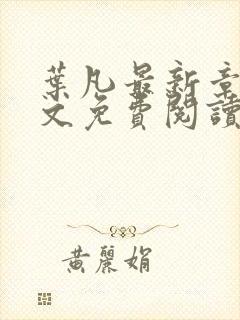 葉凡最新章
文免費閱讀
黃麗娟